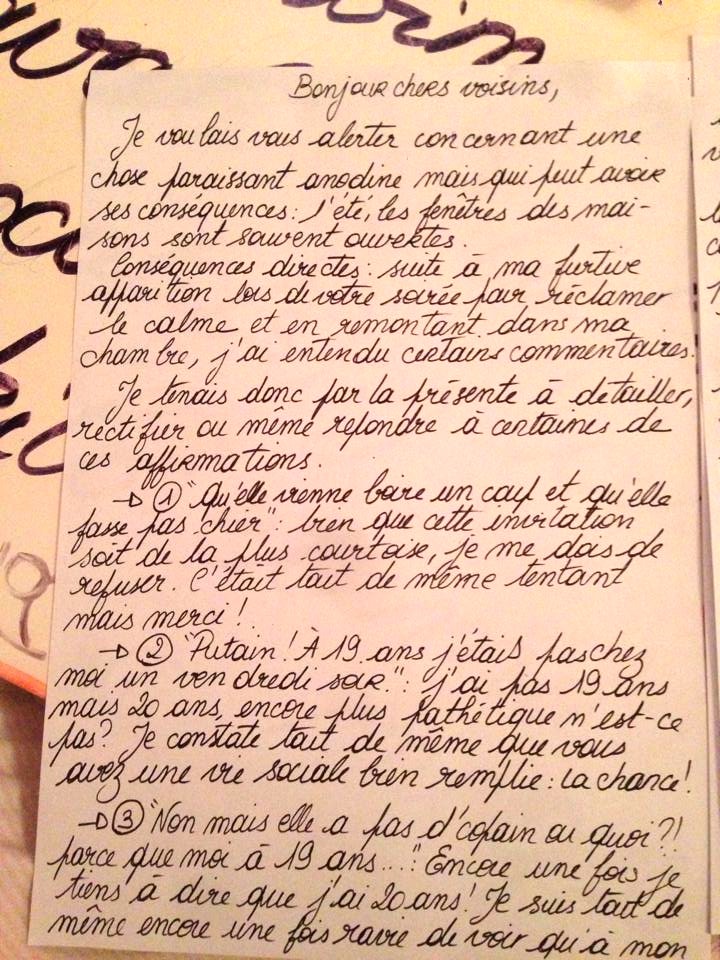 Bonjour chers voisins,
Je voulais vous alerter concernant une
chose paraissant anodine mais qui peut avoir
ses conséquences : l'été, les fenêtres des mai-
sons sont souvent ouvertes.
Conséquences directes : suite à ma furtive
apparition lors de votre soirée pour réclamer
le calme et en remontant dans ma
chambre, j'ai entendu certains commentaires.
Je tenais donc par la présente à détailler,
rectifier ou même répondre à certaines de
ces affirmations.
→ ① "Qu'elle vienne boire un coup et qu'elle
fasse pas chier" : bien que cette invitation
soit de la plus courtoise, je me dois de
refuser. C'était tout de même tentant
mais merci !
→ ② "Putain ! À 19 ans j'étais pas chez
moi un vendredi soir." : j'ai pas 19 ans
mais 20 ans, encore plus pathétique n'est-ce
pas ? Je constate tout de même que vous
avez une vie sociale bien remplie : la chance !
→ ③ "Non mais elle a pas d'copain ou quoi ?!
parce que moi à 19 ans..." Encore une fois je
tiens à dire que j'ai 20 ans ! Je suis tout de
même encore une fois ravie de voir qu'à mon